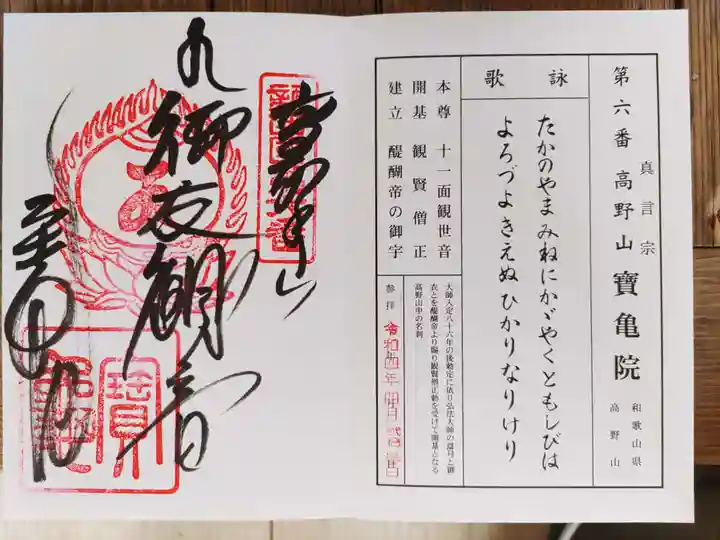 第六番 真言宗 高野山 寶亀院 和歌山県 高野山
詠歌
たかのやまみねにかゞやくともしびは
よろづよきえぬひかりなりけり
本尊 十一面観世音
開基 観賢僧正
建立 醍醐帝の御宇
大師入定八十六年の後勅定に依り弘法大師の
衣とを醍醐帝より賜り観賢僧正勅を受けて開基となる
高野山中の名刹
参拝 令和四年
高野山
御衣観音
寶